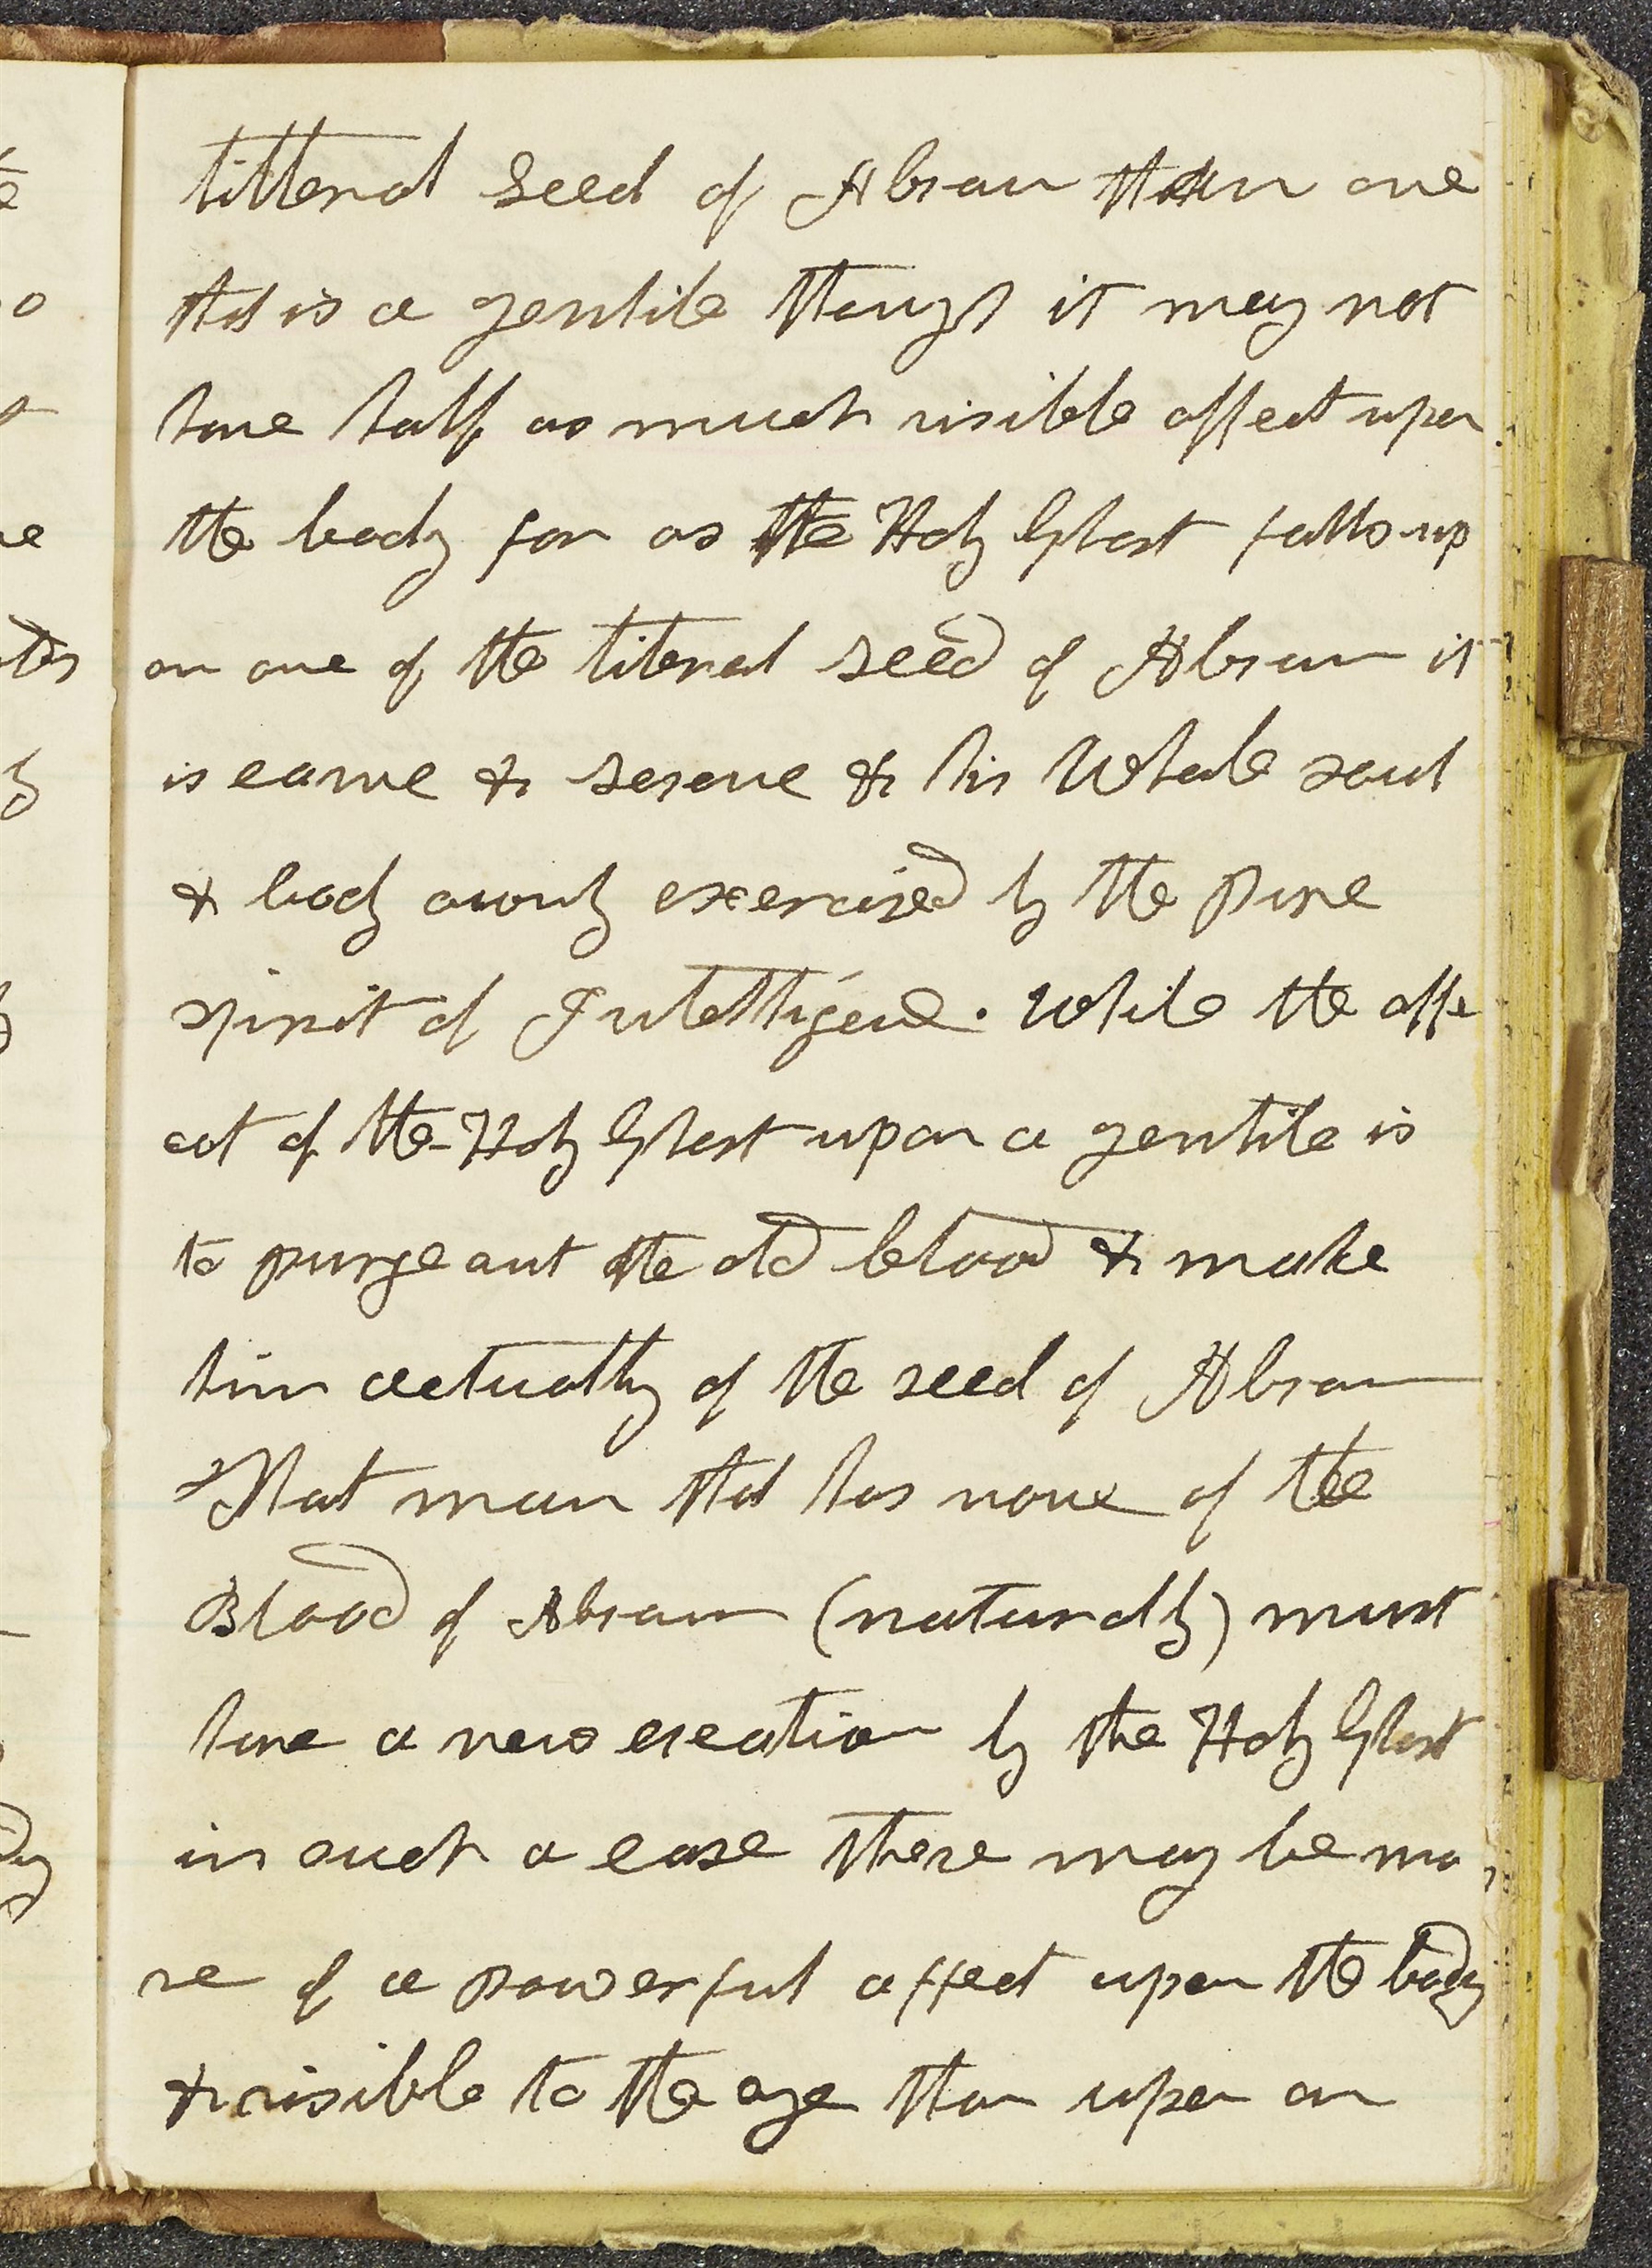 litteral seed of Abram than one
that is a gentile though it may not
have half as much visible affect upon
the body for as the Holy Ghost falls up
on one of the literal seed of Abram it
is calme & serene & his Whole soul
& body only exercised by the pure
spirit of Intelligence. While the affe
ect of the Holy Ghost upon a gentile is
to purge out the old blood & make
him actually of the seed of Abram
That man that has none of the
Blood of Abram (naturally) must
have a new creation by the Holy Ghost
in such a case there may be mo
re of a powerful affect upon the body
& visible to the eye than upon an